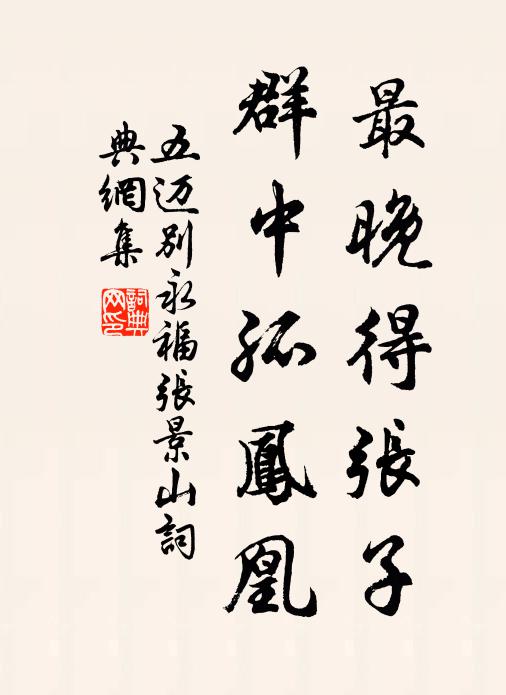 最晚得張子
群中孤鳳凰
五迈别永福張景山詞
典網集
詞典
网印